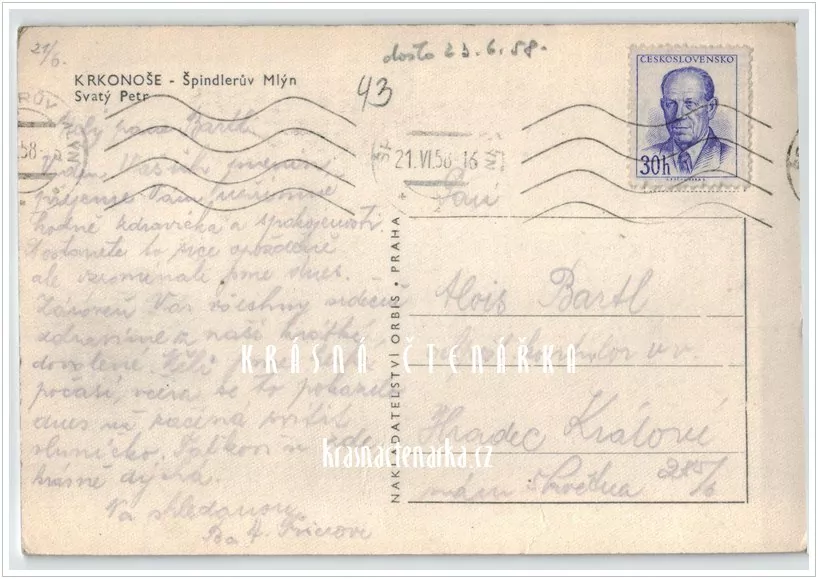 21/6.
došlo 23.6.58.
43
KRKONOŠE - Špindlerův Mlýn
Svatý Petr
ČESKOSLOVENSKO
30h
21.VI.58-16
Milý pane Bartl,
Vašich
přejeme Vám upřímně
hodně zdravíčka a spokojenosti.
Dostanete to sice opožděně
ale vzpomínali jsme dnes.
Zároveň Vás všechny srdečně
zdravíme z naší krátké
dovolené.
počasí, včera se to pokazilo
dnes už začíná svítit
sluníčko.
krásně dýchá.
Na shledanou
NAKLADATELSTVÍ ORBIS • PRAHA
Pan
Alois Bartl
v.v.
Hradec Králové
nám. 5. května
KRÁSNÁ ČTENÁŘKA
krasnactenarka.cz